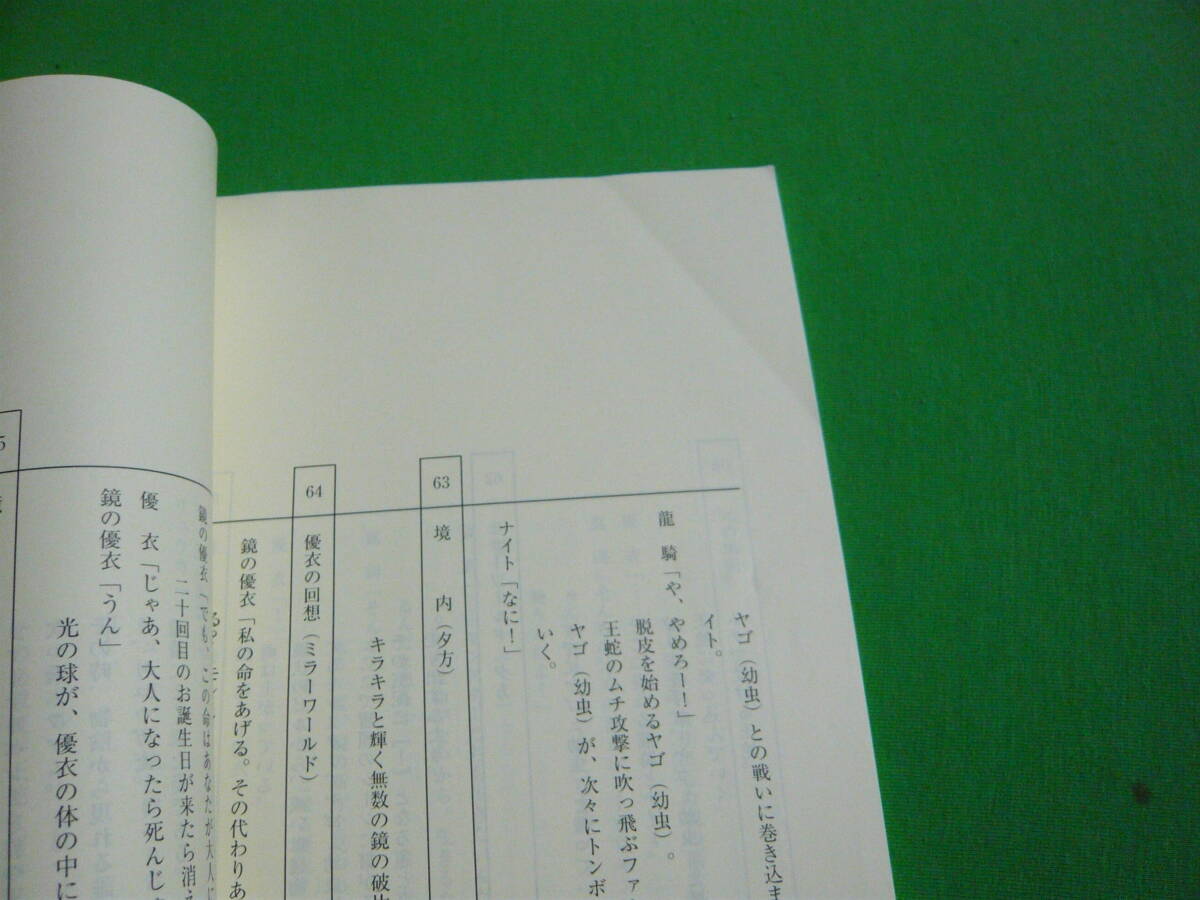 ヤゴ（幼虫）との戦いに巻き込ま
イト。
龍　騎「や、やめろー！」
脱皮を始めるヤゴ（幼虫）。
王蛇のムチ攻撃に吹っ飛ぶファ
ヤゴ（幼虫）が、次々にトンボ
いく。
ナイト「なに！」
63　境　内（夕方）
キラキラと輝く無数の鏡の破片
64　優衣の回想（ミラーワールド）
鏡の優衣「私の命をあげる。その代わりあ
鏡の優衣「でも、この命はあなたが大人に
二十回目のお誕生日が来たら消え
優　衣「じゃあ、大人になったら死んじ
鏡の優衣「うん」
光の球が、優衣の体の中に
5